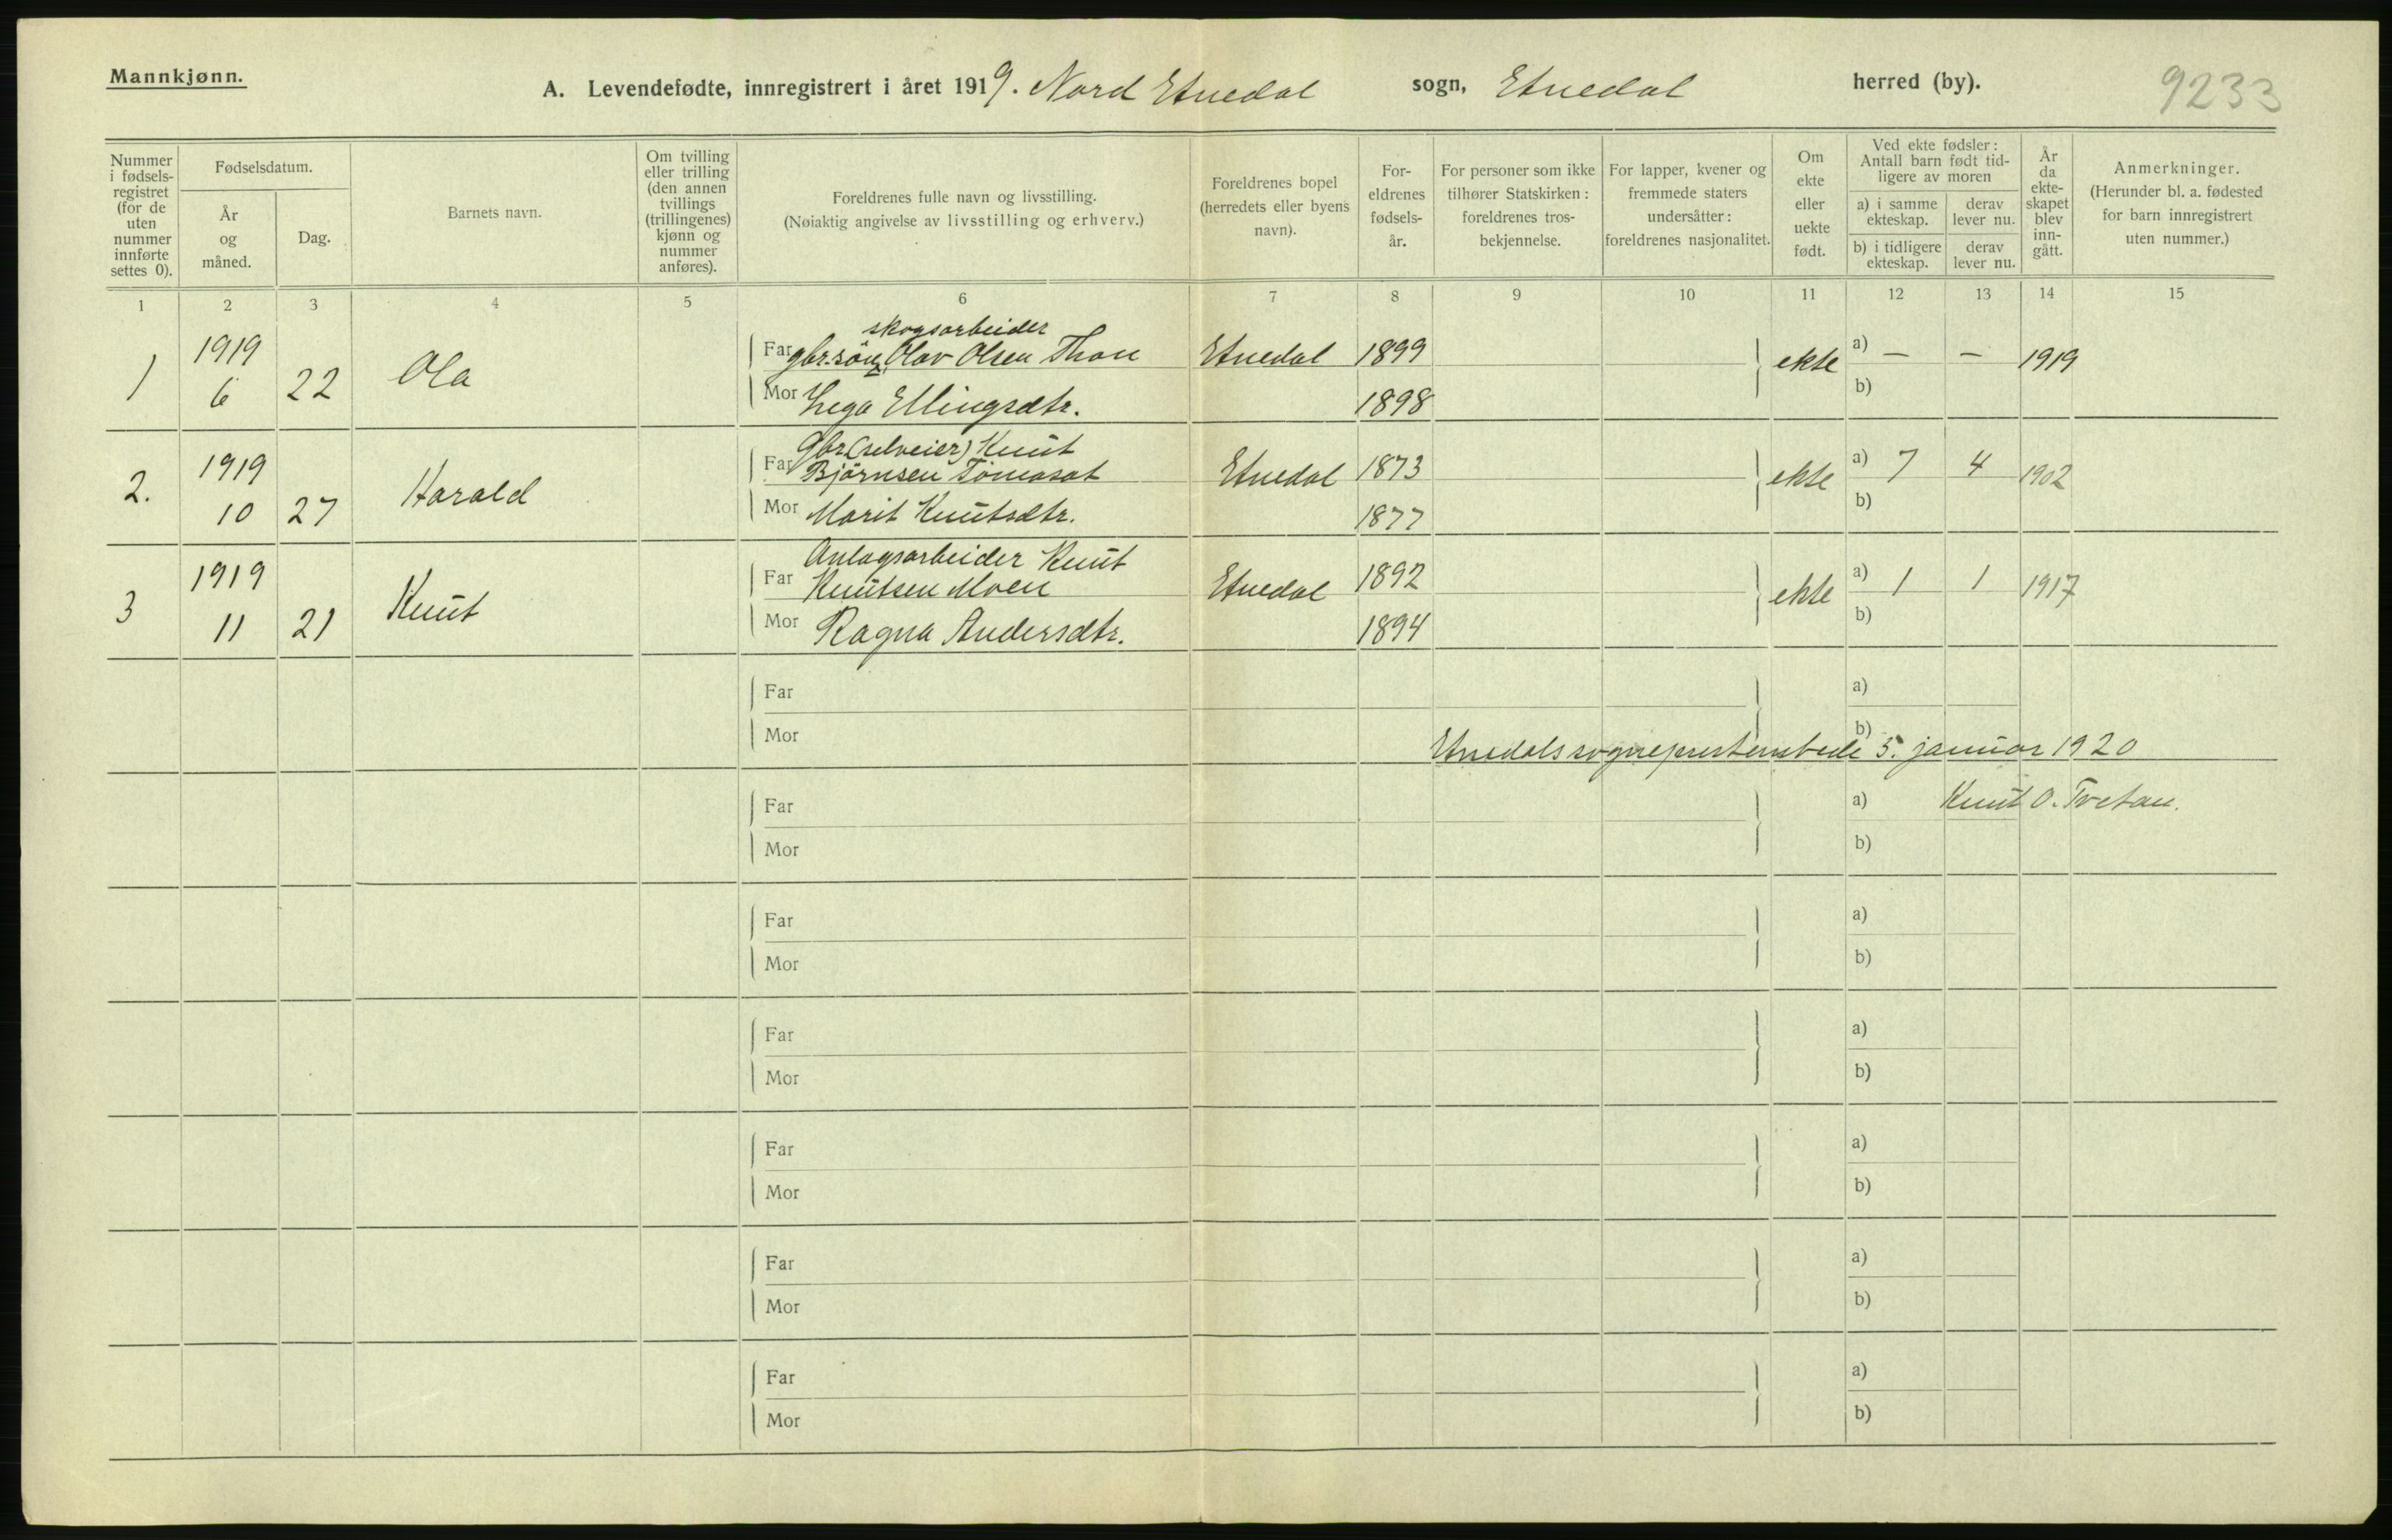 Mannkjønn.
A. Levendefødte, innregistrert i året 1919. Nord Etnedal sogn, Etnedal herred (by).
9233
Nummer i fødsels-registret (for de uten nummer innførte settes 0).
Fødselsdatum.
År og måned.
Dag.
Barnets navn.
Om tvilling eller trilling (den annen tvillings (trillingenes) kjønn og nummer anføres).
Foreldrenes fulle navn og livsstilling.
(Nøiaktig angivelse av livsstilling og erhverv.)
Foreldrenes bopel (herredets eller byens navn).
For-eldrenes fødsels-år.
For personer som ikke tilhører Statskirken: foreldrenes tros-bekjennelse.
For lapper, kvener og fremmede staters undersåtter: foreldrenes nasjonalitet.
Om ekte eller uekte født.
Ved ekte fødsler: Antall barn født tid-ligere av moren
a) i samme ekteskap.
derav lever nu.
b) i tidligere ekteskap.
derav lever nu.
År da ekte-skapet blev inn-gått.
Anmerkninger.
(Herunder bl. a. fødested for barn innregistrert uten nummer.)
1 2 3 4 5 6 7 8 9 10 11 12 13 14 15
skogsarbeider
1 1919 Far gbr.søn, Olav Olsen Thon Etnedal 1899 ekte a) — — 1919
6 22 Ola Mor Ellingsdtr. 1898 b)
Gbr. (selveier) Knut
2. 1919 Far Bjørnsen Tomasat Etnedal 1873 ekte a) 7 4 1902
10 27 Harald Mor Marit Knutsdtr. 1877 b)
Anlagsarbeider Knut
3 1919 Far Knutsen Moen Etnedal 1892 ekte a) 1 1 1917
11 21 Knut Mor Ragna Andersdtr. 1894 b)
Far a)
Mor b)
Etnedals sogneprestembede 5. januar 1920
Far a) Knut O. Tvetan.
Mor b)
Far a)
Mor b)
Far a)
Mor b)
Far a)
Mor b)
Far a)
Mor b)
Far a)
Mor b)